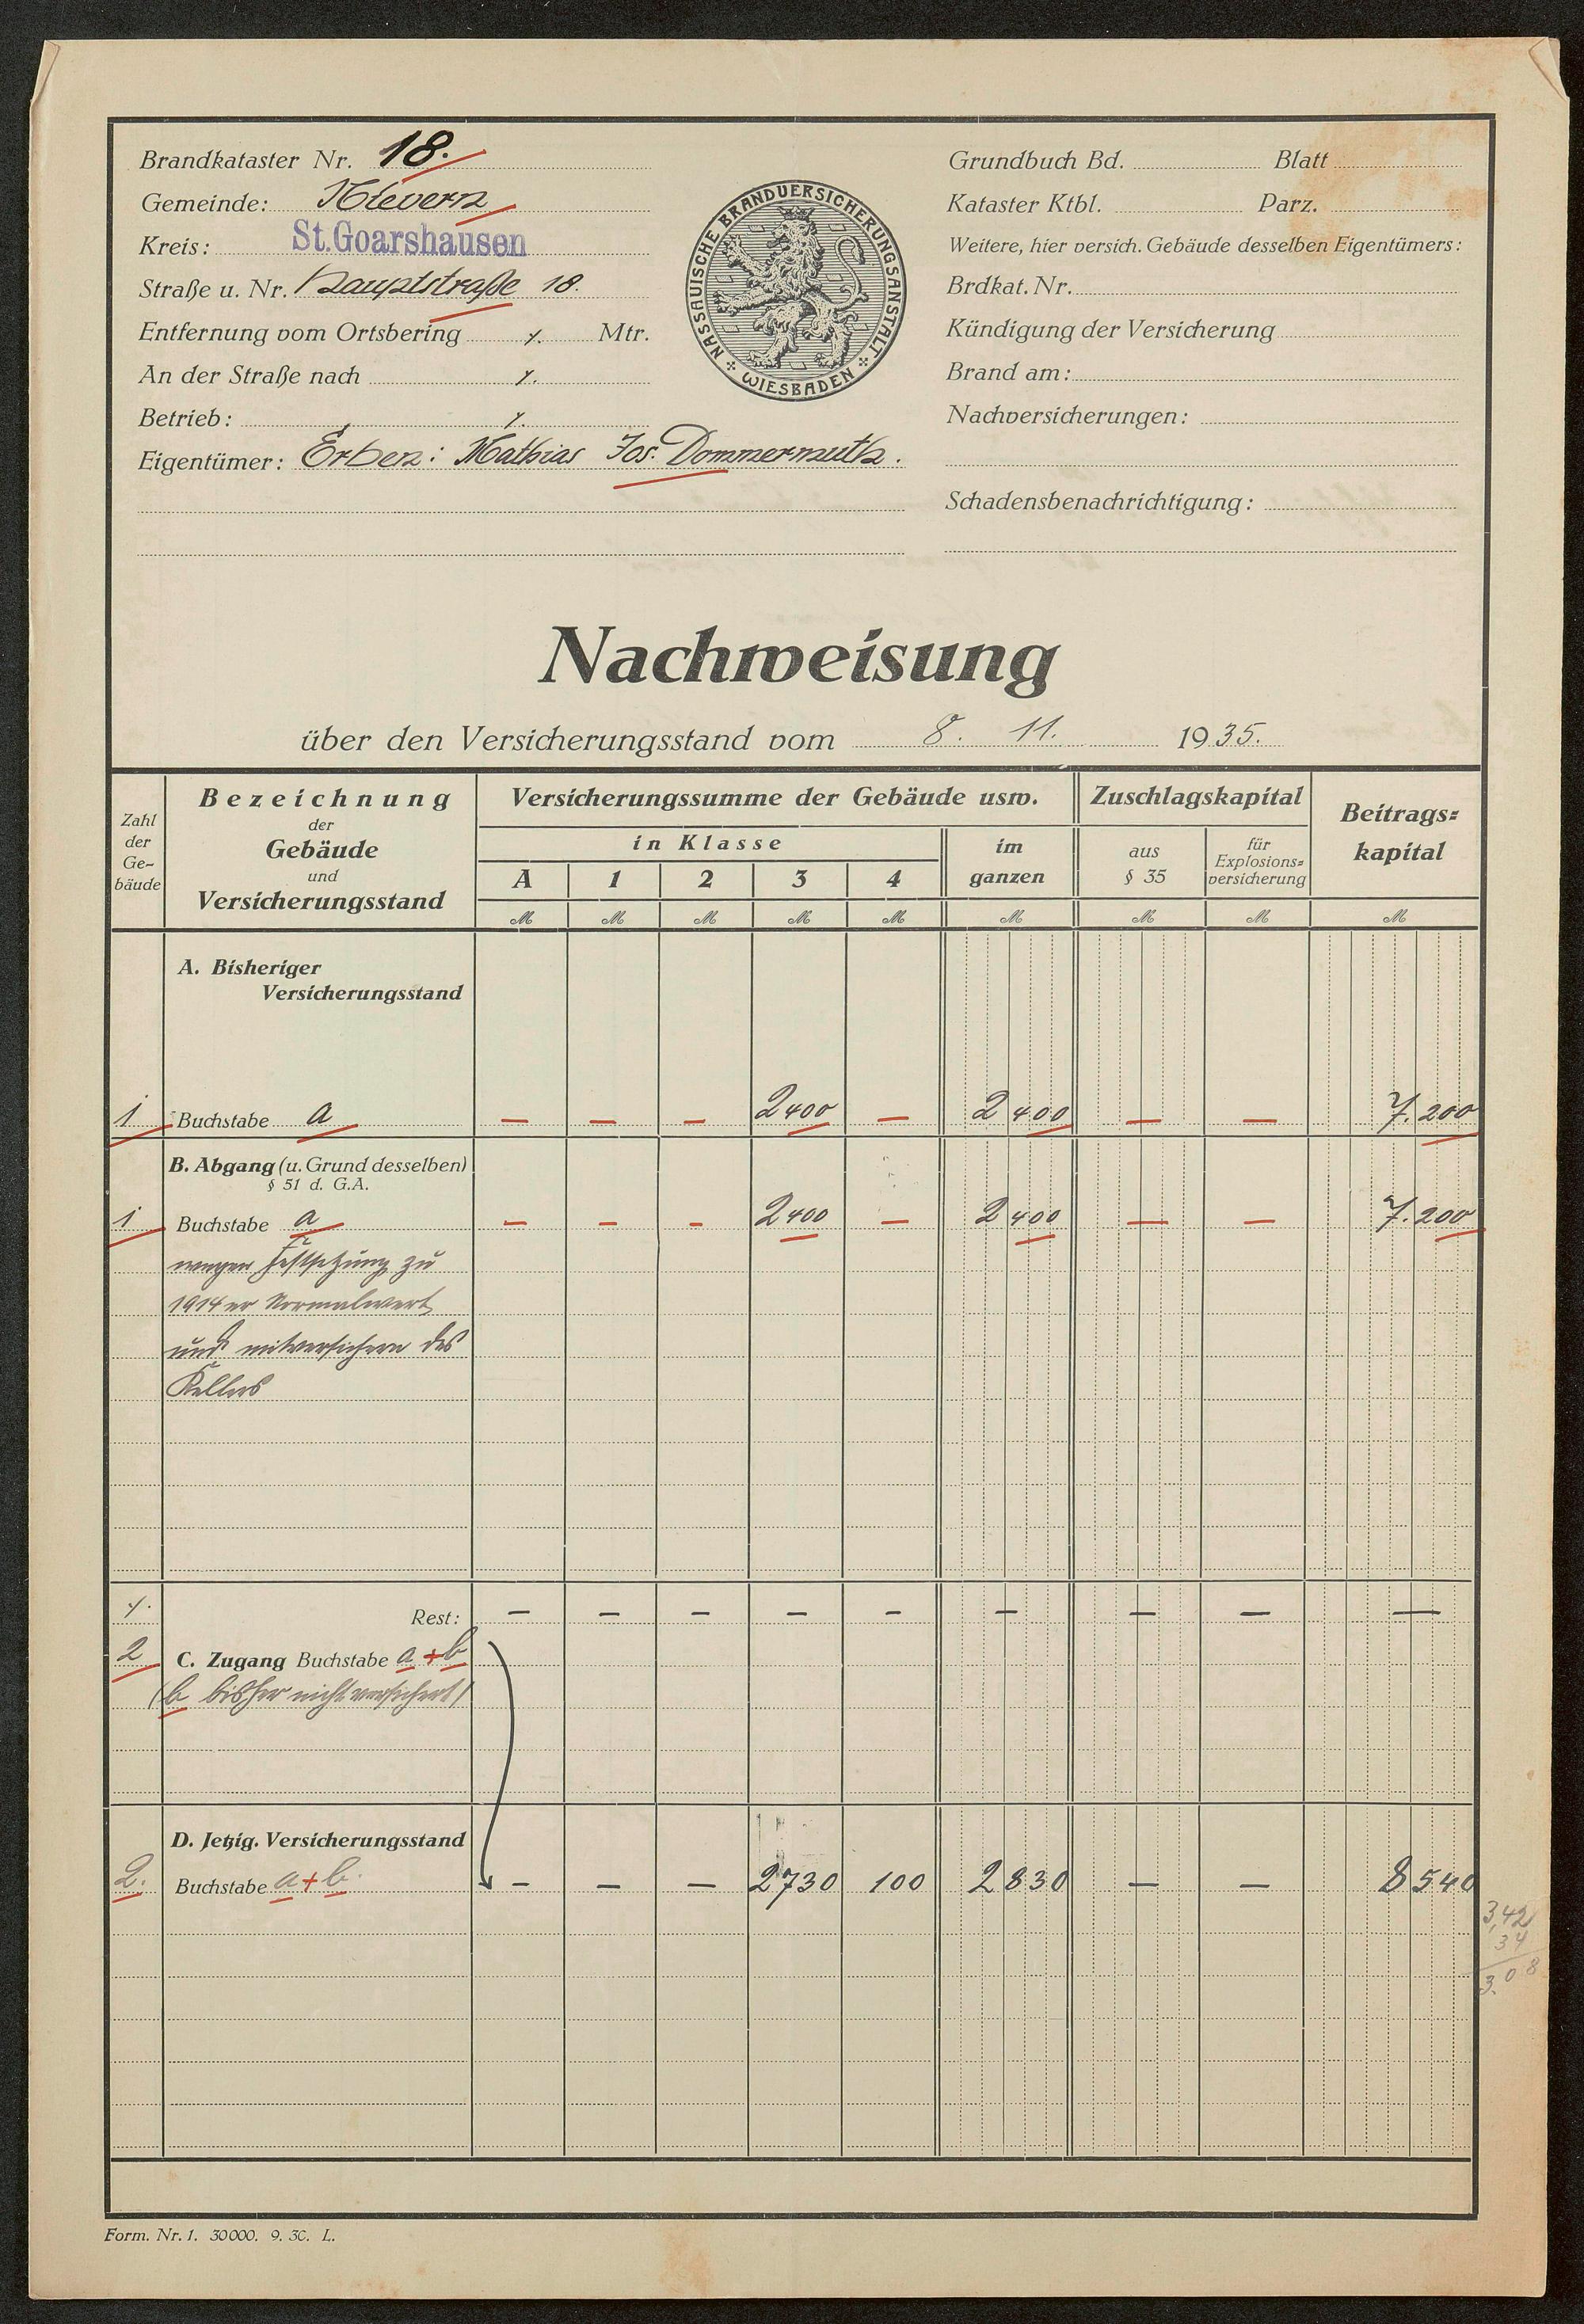 Brandkataster Nr. 18.
Gemeinde: Nievern
Kreis: St.Goarshausen
Straße u. Nr. Hauptstraße 18.
Entfernung vom Ortsbering ./. Mtr.
An der Straße nach ./.
Betrieb: ./.
Eigentümer: Erben: Mathias Jos. Dommermuth.
NASSAUISCHE BRANDVERSICHERUNGSANSTALT
WIESBADEN
Grundbuch Bd. Blatt
Kataster Ktbl. Parz.
Weitere, hier versich. Gebäude desselben Eigentümers:
Brdkat. Nr.
Kündigung der Versicherung
Brand am:
Nachversicherungen:
Schadensbenachrichtigung:
Nachweisung
über den Versicherungsstand vom 8. 11. 1935.
Zahl der Ge-bäude
Bezeichnung der Gebäude und Versicherungsstand
Versicherungssumme der Gebäude usw.
Zuschlagskapital
Beitrags-kapital
in Klasse
im ganzen
aus § 35
für Explosions-versicherung
A 1 2 3 4
M M M M M M M M M
A. Bisheriger
Versicherungsstand
1 Buchstabe a — — — 2400 — 2400 — — 7.200
B. Abgang (u. Grund desselben)
§ 51 d. G.A.
1 Buchstabe a — — — 2400 — 2400 — — 7.200
wegen Festsetzung zu
1914er Normalwert
und mitversichern des
Kellers
./. Rest: — — — — — — — — —
2 C. Zugang Buchstabe a + b
(b bisher nicht versichert)
D. Jetzig. Versicherungsstand
2. Buchstabe a + b. — — — 2730 100 2830 — — 8540
3,42
34
3.08
Form. Nr. 1. 30000. 9. 30. L.